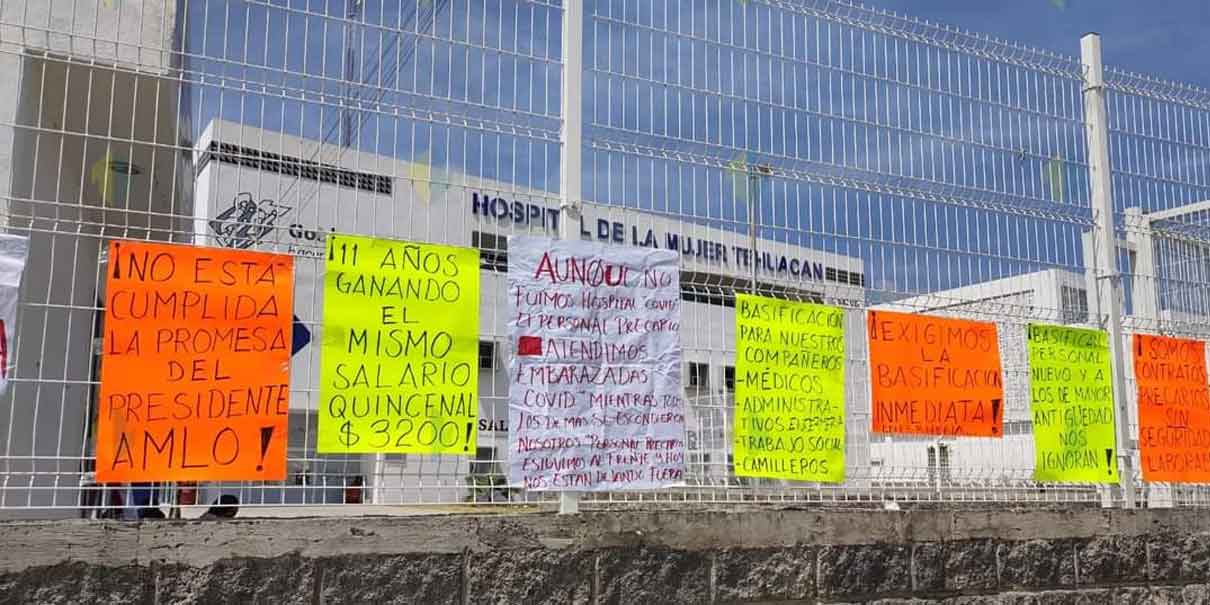 HOSPITAL DE LA MUJER TEHUACAN
¡NO ESTA
CUMPLIDA
LA PROMESA
DEL
PRESIDENTE
AMLO!
¡11 AÑOS
GANANDO
EL
MISMO
SALARIO
QUINCENAL
$3200!
AUNQUE NO
FUIMOS HOSPITAL "COVID"
EL PERSONAL PRECARIO
ATENDIMOS
EMBARAZADAS
COVID" MIENTRAS
LOS DEMAS SE ESCONDIERON
NOSOTROS "PERSONAL PRECARIO
ESTUVIMOS AL FRENTE Y HOY
NOS ESTAN DEJANDO FUERA
BASIFICACIÓN
PARA NUESTROS
COMPAÑEROS
-MÉDICOS
-ADMINISTRA-
TIVOS
-TRABAJO SOCIAL
-CAMILLEROS
¡EXIGIMOS
LA
BASIFICACION
INMEDIATA!
¡BASIFICAN
PERSONAL
NUEVO Y A
LOS DE MAYOR
ANTIGÜEDAD
NOS
IGNORAN!
¡SOMOS
CONTRATOS
PRECARIOS
SIN
SEGURIDAD
LABORAL